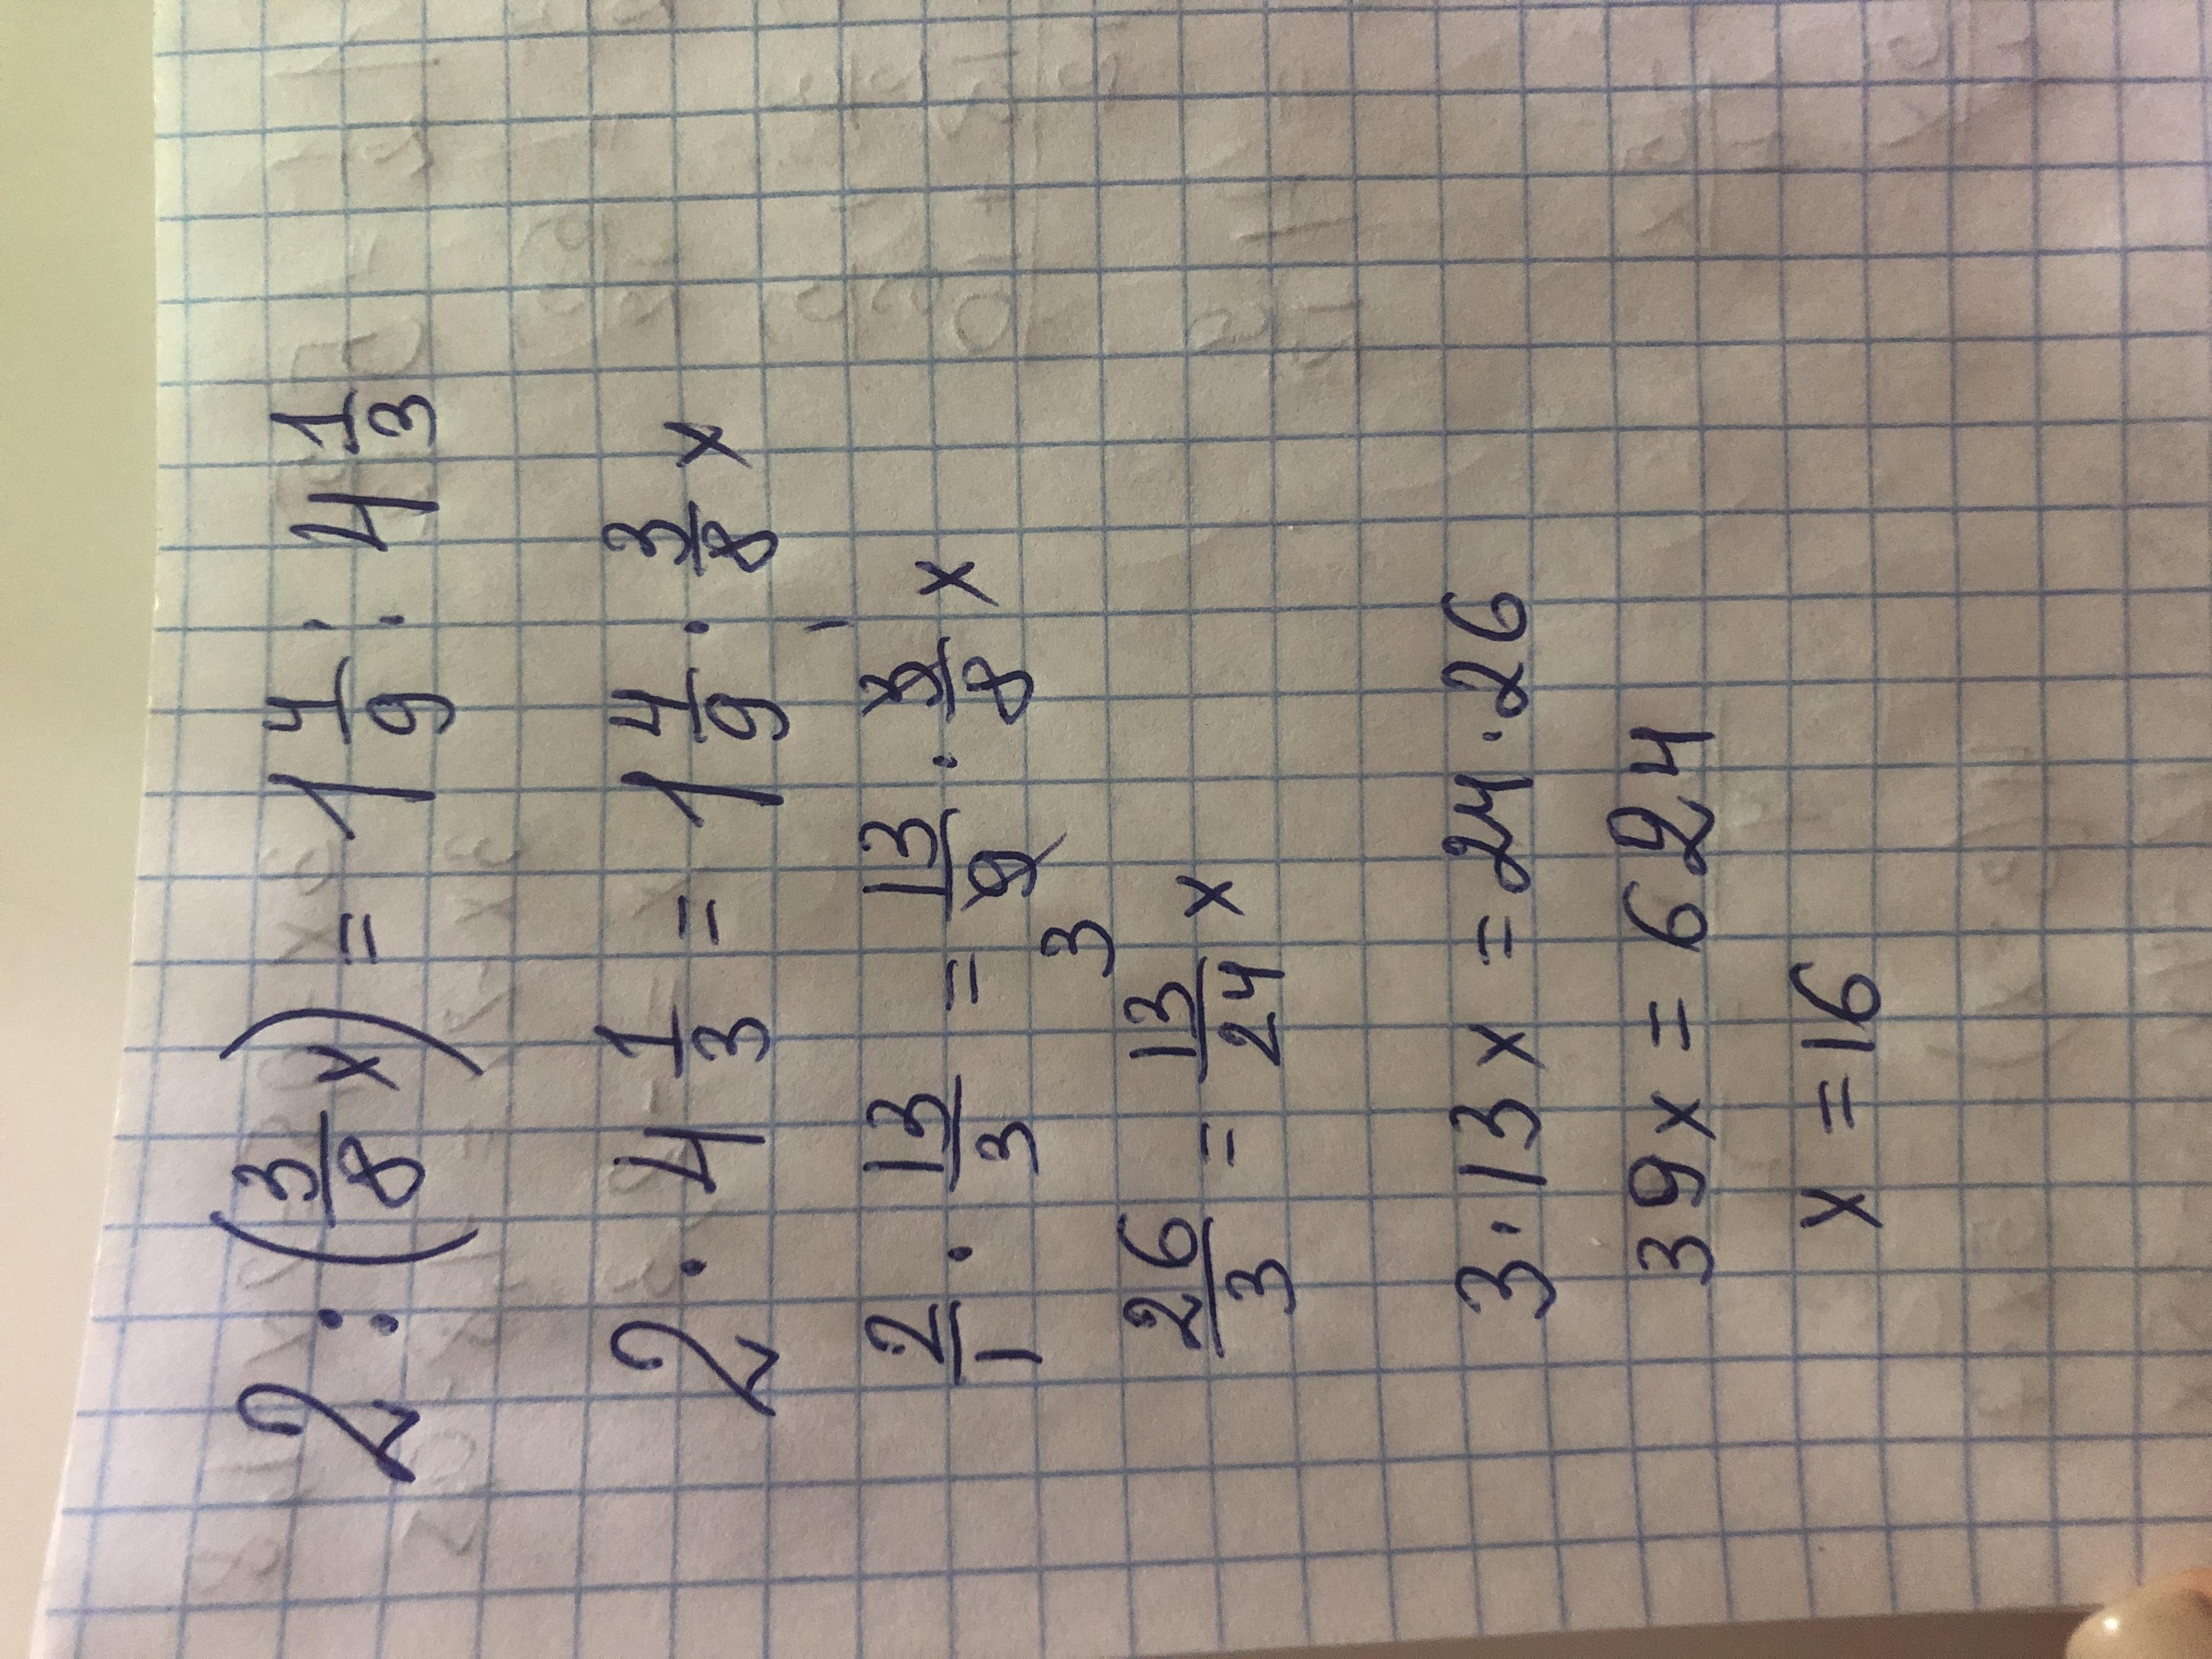 2 : (3/8 x) = 1 4/9 : 4 1/3
2 · 4 1/3 = 1 4/9 · 3/8 x
2/1 · 13/3 = 13/9 · 3/8 x
3
26/3 = 13/24 x
3 · 13 x = 24 · 26
39 x = 624
x = 16